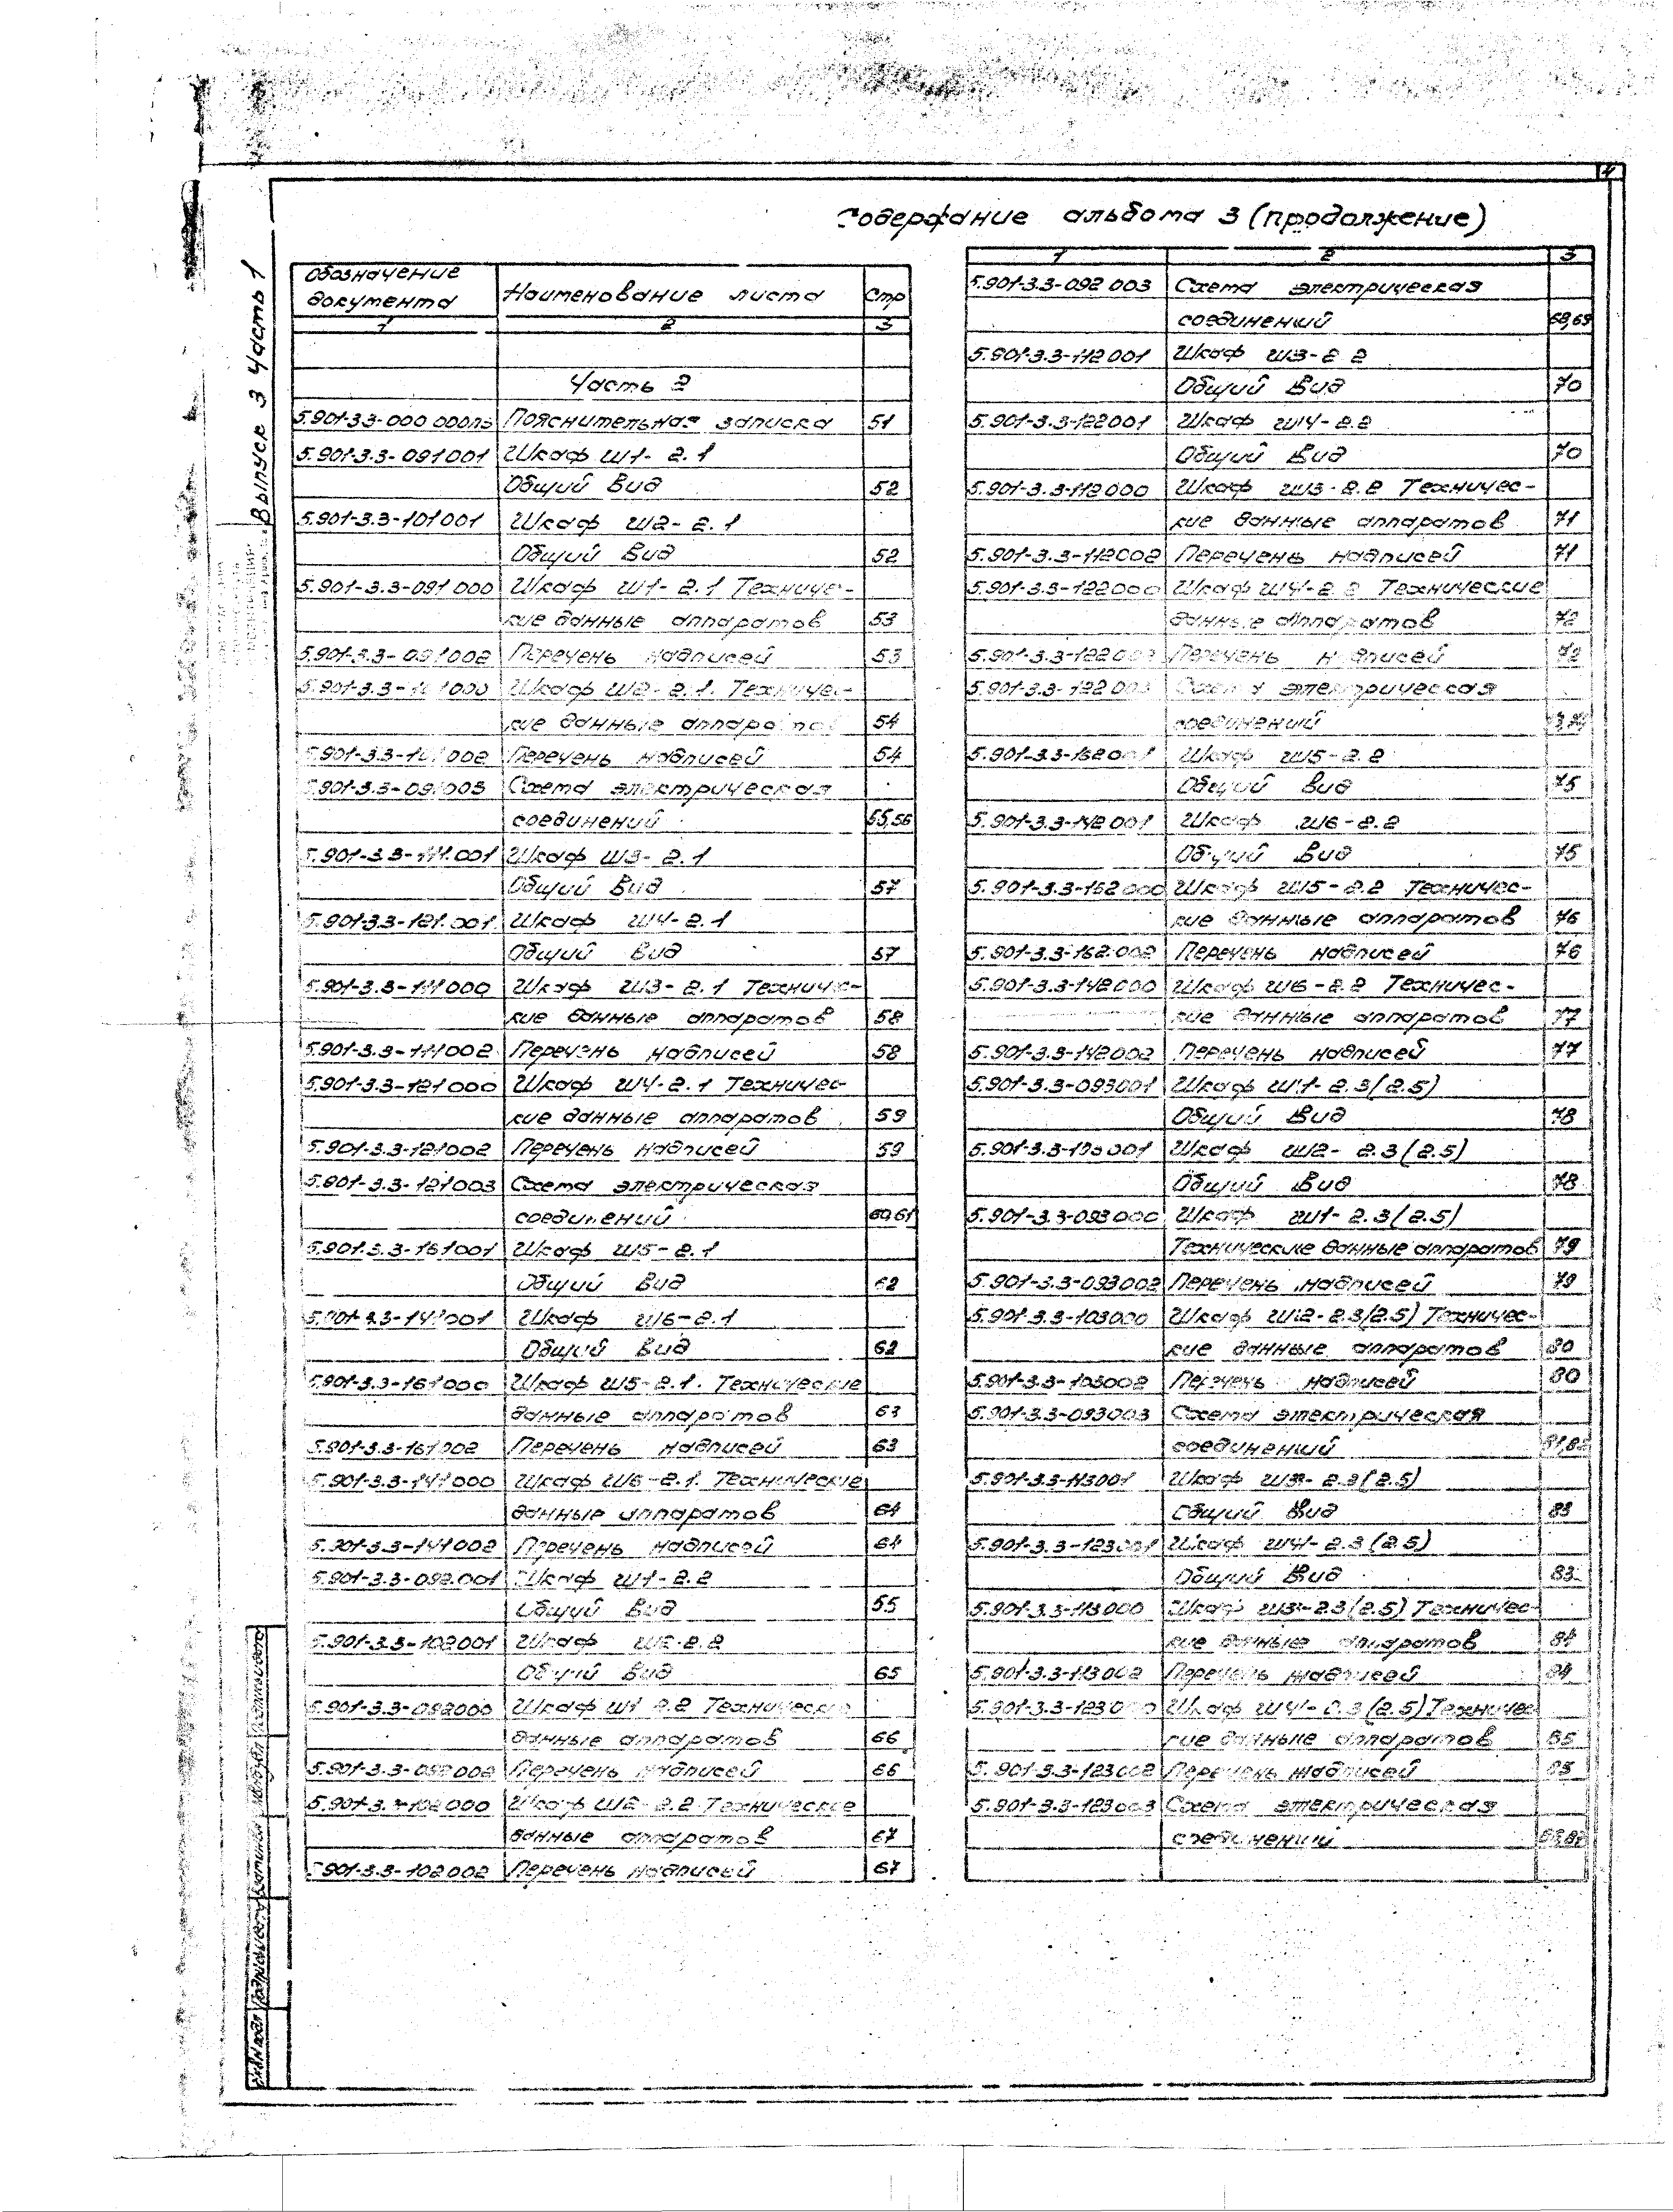 4
Содержание альбома 3 (продолжение)
Выпуск 3 Часть 1
Обозначение документа Наименование листа Стр
1 2 3
Часть 2
5.901-3.3-000 000ПЗ Пояснительная записка 51
5.901-3.3-091001 Шкаф Ш1-2.1
Общий вид 52
5.901-3.3-101001 Шкаф Ш2-2.1
Общий вид 52
5.901-3.3-091000 Шкаф Ш1-2.1 Техничес-
кие данные аппаратов 53
5.901-3.3-091002 Перечень надписей 53
5.901-3.3-101000 Шкаф Ш2-2.1. Техничес-
кие данные аппаратов 54
5.901-3.3-101002 Перечень надписей 54
5.901-3.3-091003 Схема электрическая
соединений 55,56
5.901-3.3-111.001 Шкаф Ш3-2.1
Общий вид 57
5.901-3.3-121.001 Шкаф Ш4-2.1
Общий вид 57
5.901-3.3-111000 Шкаф Ш3-2.1 Техничес-
кие данные аппаратов 58
5.901-3.3-111002 Перечень надписей 58
5.901-3.3-121000 Шкаф Ш4-2.1 Техничес-
кие данные аппаратов 59
5.901-3.3-121002 Перечень надписей 59
5.901-3.3-121003 Схема электрическая
соединений 60,61
5.901-3.3-161001 Шкаф Ш5-2.1
Общий вид 62
5.901-3.3-141001 Шкаф Ш6-2.1
Общий вид 62
5.901-3.3-161000 Шкаф Ш5-2.1. Технические
данные аппаратов 63
5.901-3.3-161002 Перечень надписей 63
5.901-3.3-141000 Шкаф Ш6-2.1. Технические
данные аппаратов 64
5.901-3.3-141002 Перечень надписей 64
5.901-3.3-092.001 Шкаф Ш1-2.2
Общий вид 55
5.901-3.3-102001 Шкаф Ш2-2.2
Общий вид 65
5.901-3.3-092000 Шкаф Ш1 2.2 Технические
данные аппаратов 66
5.901-3.3-092002 Перечень надписей 66
5.901-3.3-102000 Шкаф Ш2-2.2 Технические
данные аппаратов 67
5.901-3.3-102002 Перечень надписей 67
1 2 3
5.901-3.3-092 003 Схема электрическая
соединений 68,69
5.901-3.3-112001 Шкаф Ш3-2 2
Общий вид 70
5.901-3.3-122001 Шкаф Ш4-2.2
Общий вид 70
5.901-3.3-112000 Шкаф Ш3-2.2 Техничес-
кие данные аппаратов 71
5.901-3.3-112002 Перечень надписей 71
5.901-3.3-122000 Шкаф Ш4-2.2 Технические
данные аппаратов 72
5.901-3.3-122002 Перечень надписей 72
5.901-3.3-122 003 Схема электрическая
соединений 73,74
5.901-3.3-162001 Шкаф Ш5-2.2
Общий вид 75
5.901-3.3-142001 Шкаф Ш6-2.2
Общий вид 75
5.901-3.3-162000 Шкаф Ш5-2.2 Техничес-
кие данные аппаратов 76
5.901-3.3-162.002 Перечень надписей 76
5.901-3.3-142000 Шкаф Ш6-2.2 Техничес-
кие данные аппаратов 77
5.901-3.3-142002 Перечень надписей 77
5.901-3.3-093001 Шкаф Ш1-2.3(2.5)
Общий вид 78
5.901-3.3-103001 Шкаф Ш2-2.3(2.5)
Общий вид 78
5.901-3.3-093000 Шкаф Ш1-2.3(2.5)
Технические данные аппаратов 79
5.901-3.3-093002 Перечень надписей 79
5.901-3.3-103000 Шкаф Ш2-2.3(2.5) Техничес-
кие данные аппаратов 80
5.901-3.3-103002 Перечень надписей 80
5.901-3.3-093003 Схема электрическая
соединений 81,82
5.901-3.3-113001 Шкаф Ш3-2.3(2.5)
Общий вид 83
5.901-3.3-123001 Шкаф Ш4-2.3(2.5)
Общий вид 83
5.901-3.3-113000 Шкаф Ш3-2.3(2.5) Техничес-
кие данные аппаратов 84
5.901-3.3-113002 Перечень надписей 84
5.901-3.3-123000 Шкаф Ш4-2.3(2.5) Техничес
кие данные аппаратов 85
5.901-3.3-123002 Перечень надписей 85
5.901-3.3-123003 Схема электрическая
соединений
Инв № подл Подпись и дата